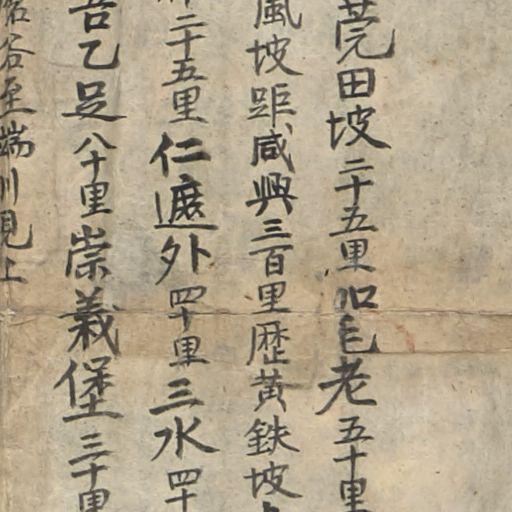 莞田坡二十五里加毛老五十里
風坡距咸興三百里歷黃鉄坡
二十五里仁遮外四十里三水四十
吾乙足八十里崇義堡三十里
谷至端川見上